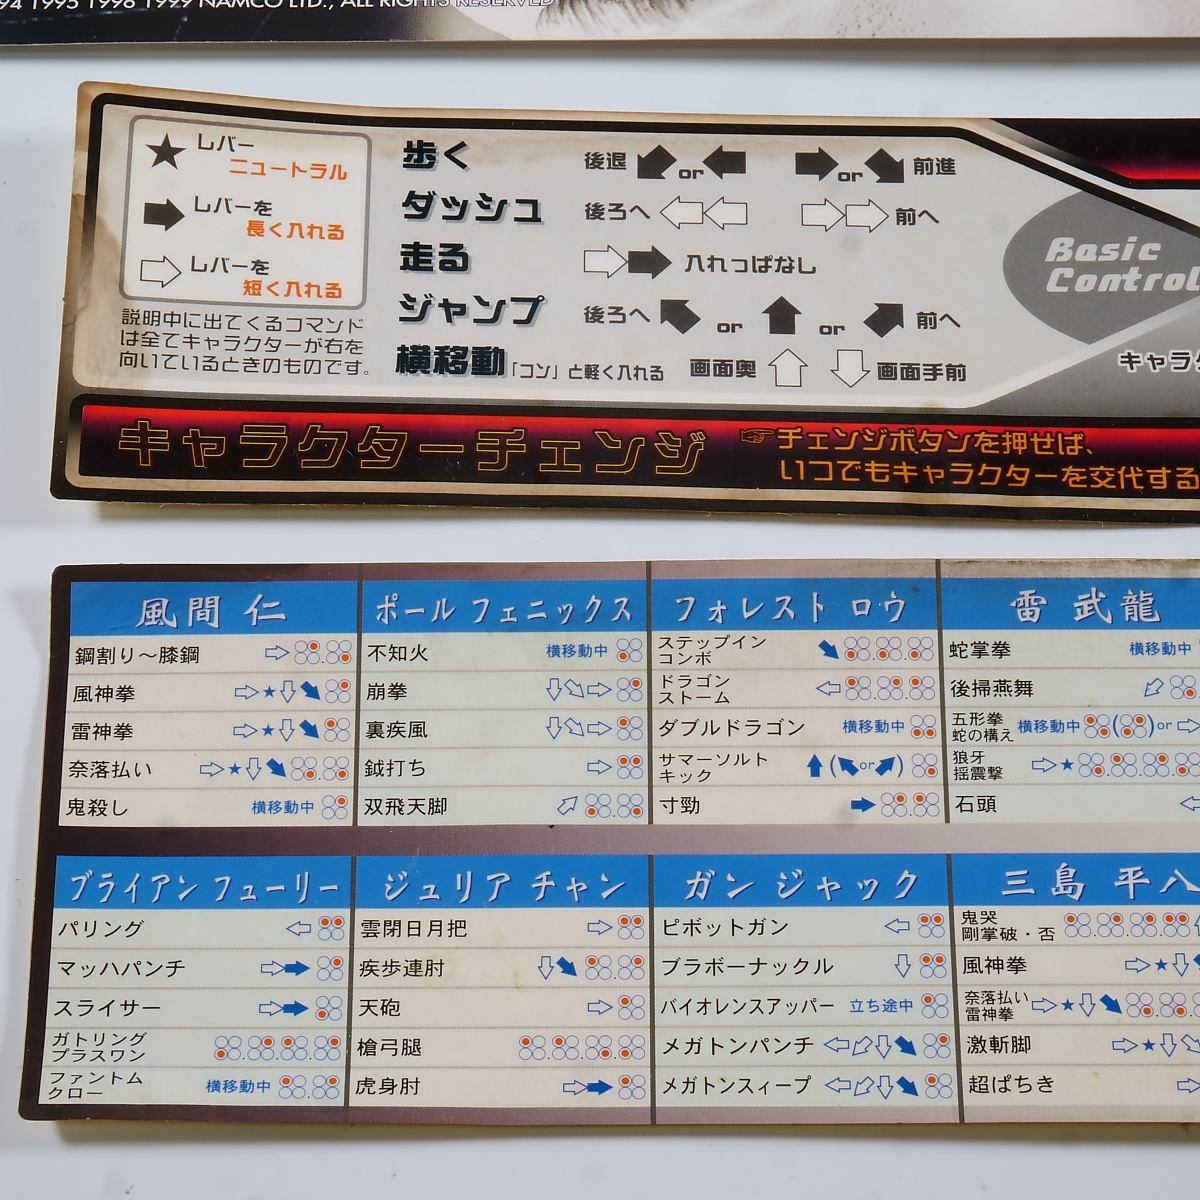 94 1995 1998 1999 NAMCO LTD., ALL RIGHTS RESERVED
★ レバー
ニュートラル
レバーを
長く入れる
レバーを
短く入れる
説明中に出てくるコマンド
は全てキャラクターが右を
向いているときのものです。
歩く 後退 or or 前進
ダッシュ 後ろへ 前へ
走る 入れっぱなし
ジャンプ 後ろへ or or 前へ
横移動「コン」と軽く入れる 画面奥 画面手前
Basic
Control
キャラ
キャラクターチェンジ
☞チェンジボタンを押せば、
いつでもキャラクターを交代する
風間 仁
鋼割り〜膝鋼
風神拳 ★
雷神拳 ★
奈落払い ★
鬼殺し 横移動中
ポール フェニックス
不知火 横移動中
崩拳
裏疾風
鉞打ち
双飛天脚
フォレスト ロウ
ステップイン
コンボ
ドラゴン
ストーム
ダブルドラゴン 横移動中
サマーソルト
キック ( or )
寸勁
雷 武龍
蛇掌拳 横移動中
後掃燕舞
五形拳
蛇の構え 横移動中 ( ) or
狼牙
揺震撃 ★
石頭
ブライアン フューリー
パリング
マッハパンチ
スライサー
ガトリング
プラスワン
ファントム
クロー 横移動中
ジュリア チャン
雲閉日月把
疾歩連肘
天砲
槍弓腿
虎身肘
ガン ジャック
ピボットガン
ブラボーナックル
バイオレンスアッパー 立ち途中
メガトンパンチ
メガトンスィープ
三島 平八
鬼哭
剛掌破・否
風神拳 ★
奈落払い
雷神拳 ★
激斬脚 ★
超ぱちき